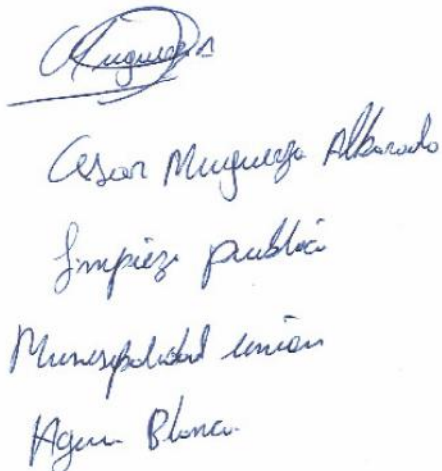 Cesar Munguerza Albarado
Limpieza publica
Municipalidad unión
Agua Blanca